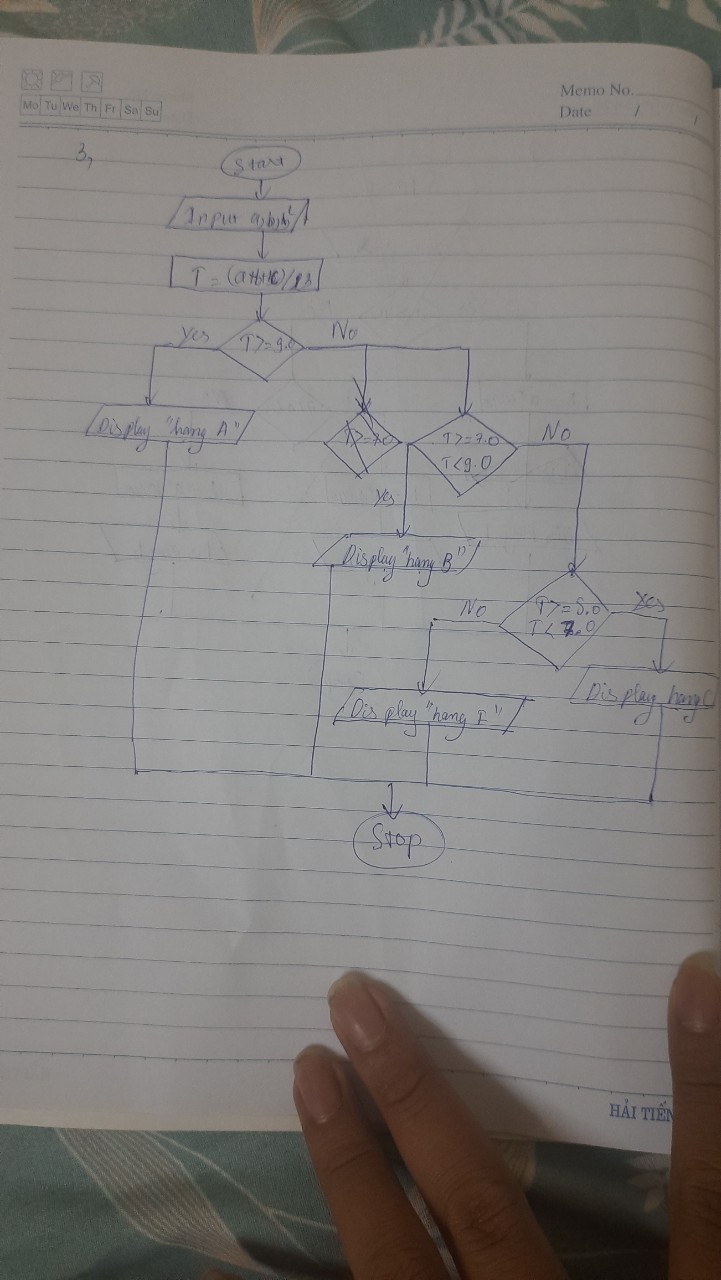 Memo No.
Mo Tu We Th Fr Sa Su
Date / /
3,
Start
Input a,b,
T = (a+b+c)/
Yes
T>=9.0
No
Display "hạng A"
T>=7.0
T>=7.0
T<9.0
No
Yes
Display "hạng B"
T>=5.0
T<7.0
No
Yes
Display "hạng F"
Display hạng C
Stop
HẢI TIẾN